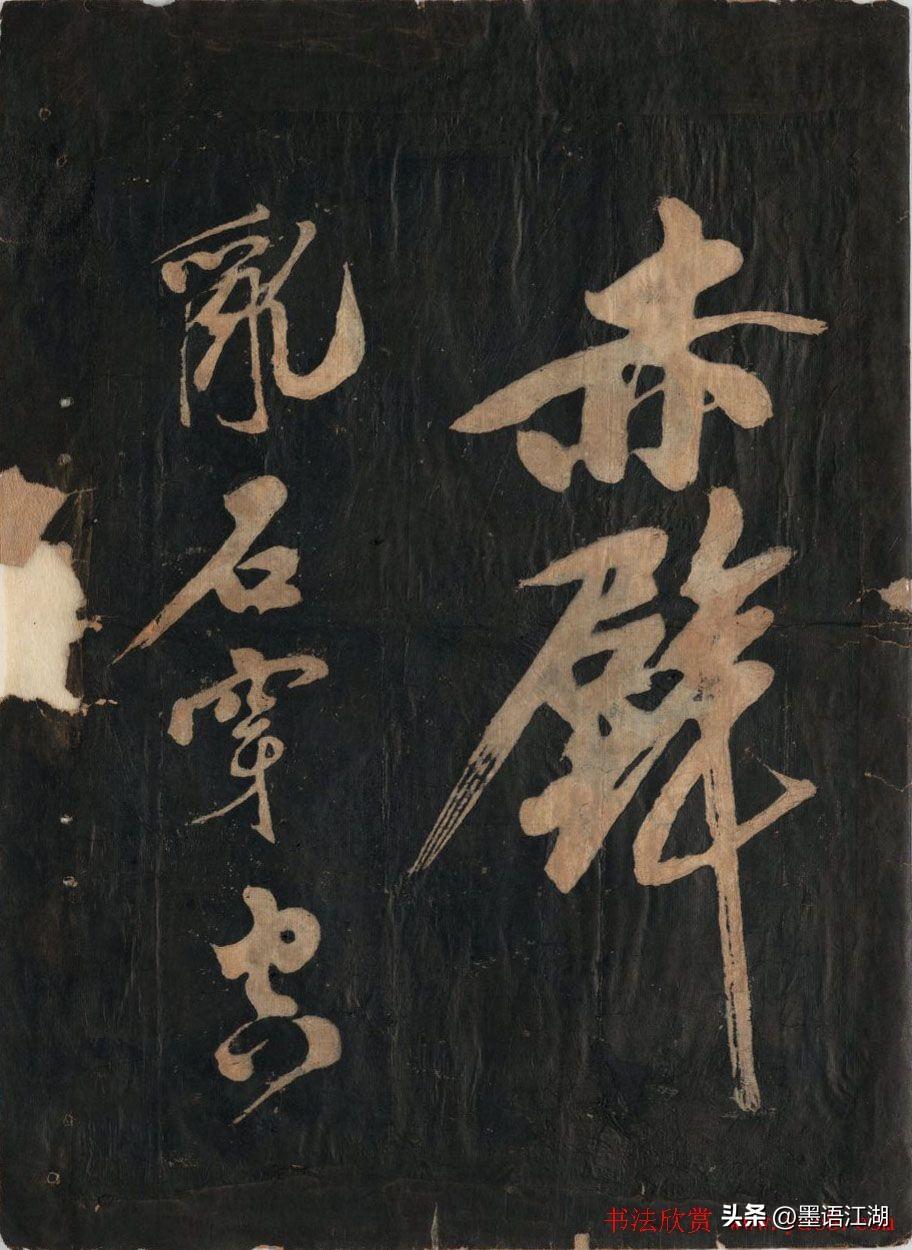 赤壁
亂石穿空
书法欣赏
头条 @墨语江湖